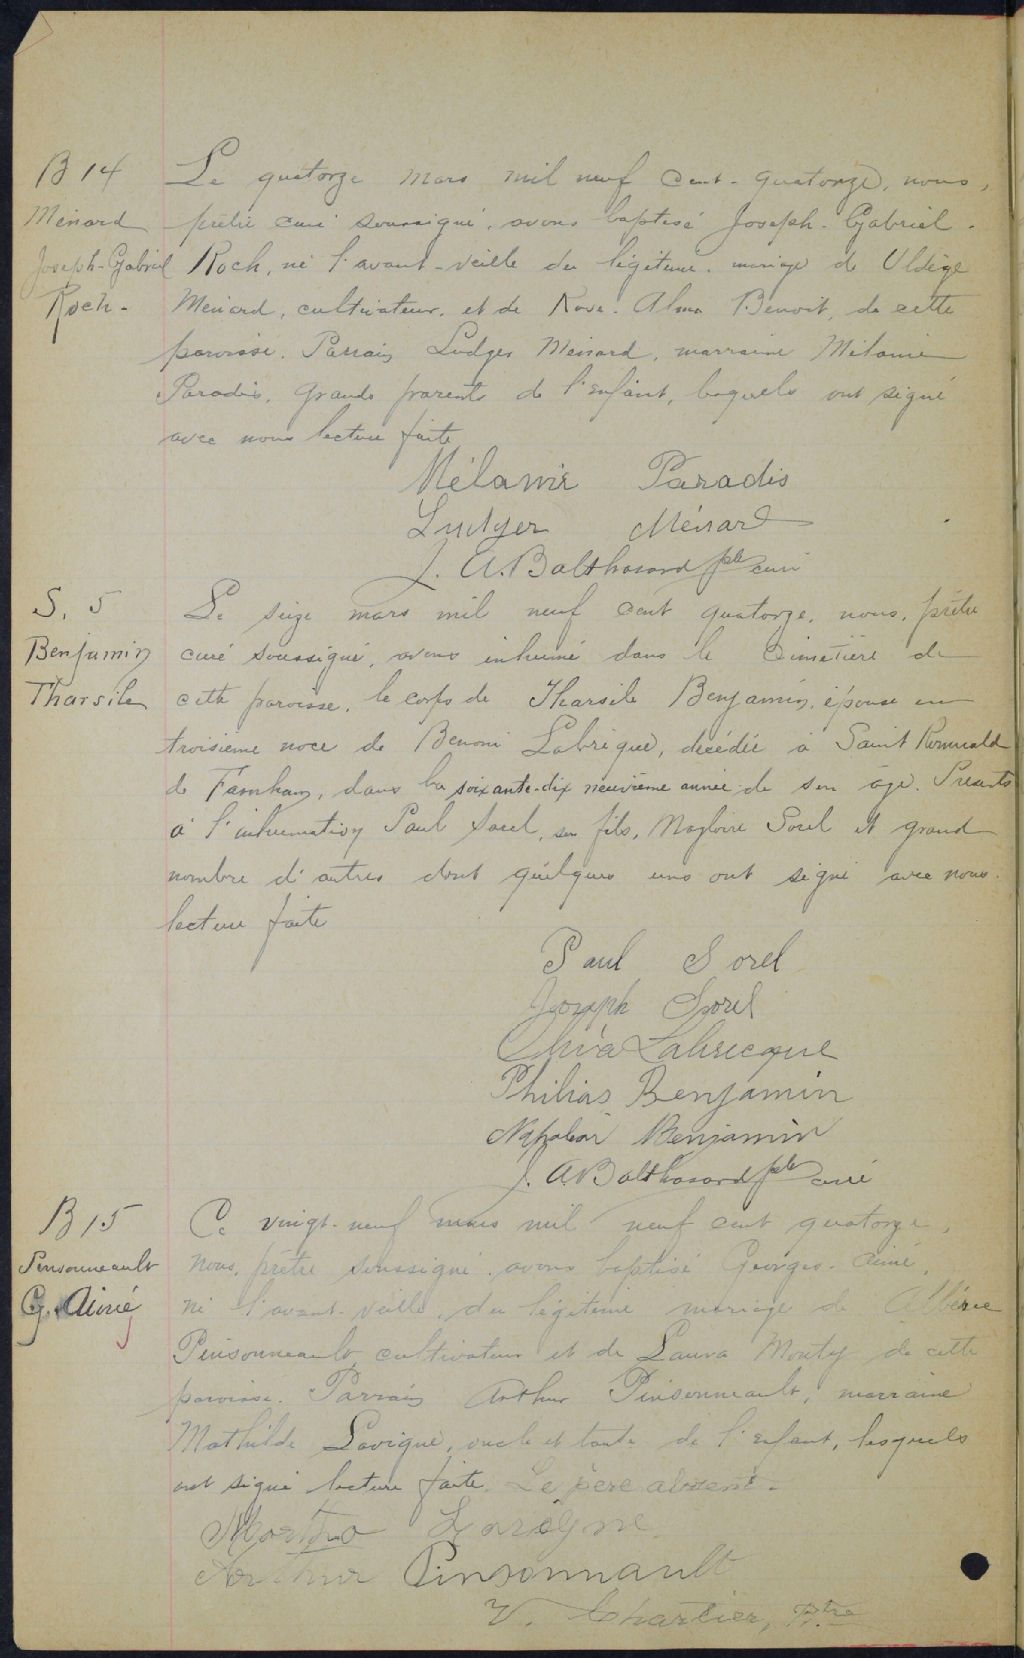 B 14
Ménard
Joseph-Gabriel
Roch -
Le quatorze mars mil neuf cent-quatorze, nous,
prêtre curé soussigné, avons baptisé Joseph-Gabriel-
Roch, né l'avant-veille du légitime mariage de Uldège
Ménard, cultivateur, et de Rose-Alma Benoit, de cette
paroisse. Parrain Ludger Ménard, marraine Mélanie
Paradis, grands parents de l'enfant, lesquels ont signé
avec nous lecture faite
Mélanie Paradis
Ludger Ménard
J. A. Balthasard ptre curé
S. 5
Benjamin
Tharsile
Le seize mars mil neuf cent quatorze, nous, prêtre
curé soussigné, avons inhumé dans le cimetière de
cette paroisse, le corps de Tharsile Benjamin, épouse en
troisième noce de Benoni Labrique, décédée à Saint Romuald
de Farnham, dans la soixante-dix neuvième année de son âge. Présents
à l'inhumation Paul Sorel, son fils, Magloire Sorel et grand
nombre d'autres dont quelques uns ont signé avec nous.
lecture faite
Paul Sorel
Joseph Sorel
Labrecque
Philias Benjamin
Napoléon Benjamin
J. A. Balthasard ptre curé
B 15
Pinsonneault
G. Aimé
Ce vingt-neuf mars mil neuf cent quatorze,
nous, prêtre soussigné, avons baptisé Georges-Aimé,
né l'avant-veille, du légitime mariage de Albéric
Pinsonneault, cultivateur et de Laura Monty de cette
paroisse. Parrain Arthur Pinsonneault, marraine
Mathilde Lavigne, oncle et tante de l'enfant, lesquels
ont signé lecture faite. Le père absent.
Lavigne
Arthur Pinsonnault
V. Chartier, Ptre